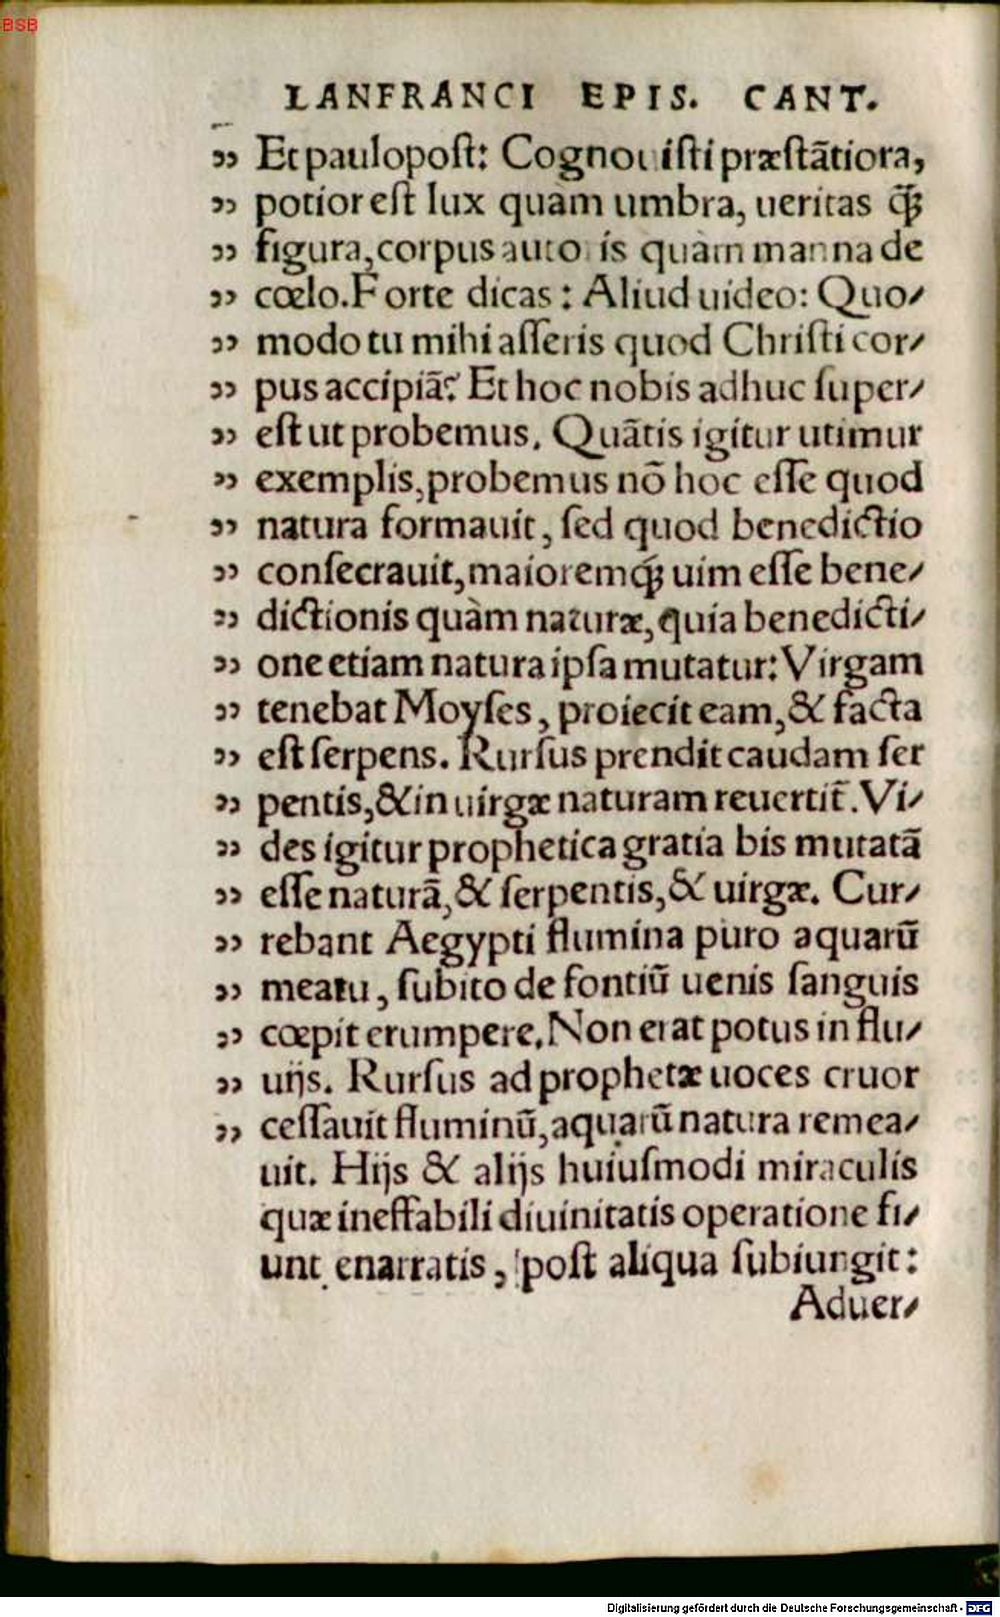 BSB
LANFRANCI EPIS. CANT.
„ Et paulopost: Cognouisti præstãtiora,
„ potior est lux quàm umbra, ueritas q̃ꝫ
„ figura, corpus autoris quàm manna de
„ cœlo. Forte dicas: Aliud uideo: Quo⸗
„ modo tu mihi asseris quod Christi cor⸗
„ pus accipiã? Et hoc nobis adhuc super⸗
„ est ut probemus. Quãtis igitur utimur
„ exemplis, probemus nõ hoc esse quod
„ natura formauit, sed quod benedictio
„ consecrauit, maioremqꝫ uim esse bene⸗
„ dictionis quàm naturæ, quia benedicti⸗
„ one etiam natura ipsa mutatur: Virgam
„ tenebat Moyses, proiecit eam, & facta
„ est serpens. Rursus prendit caudam ser
„ pentis, & in uirgæ naturam reuertit̃. Vi⸗
„ des igitur prophetica gratia bis mutatã
„ esse naturã, & serpentis, & uirgæ. Cur⸗
„ rebant Aegypti flumina puro aquarũ
„ meatu, subito de fontiũ uenis sanguis
„ cœpit erumpere. Non erat potus in flu⸗
„ uijs. Rursus ad prophetæ uoces cruor
„ cessauit fluminũ, aquarũ natura remea⸗
uit. Hijs & alijs huiusmodi miraculis
quæ ineffabili diuinitatis operatione fi⸗
unt enarratis, post aliqua subiungit:
Aduer⸗
Digitalisierung gefördert durch die Deutsche Forschungsgemeinschaft - DFG